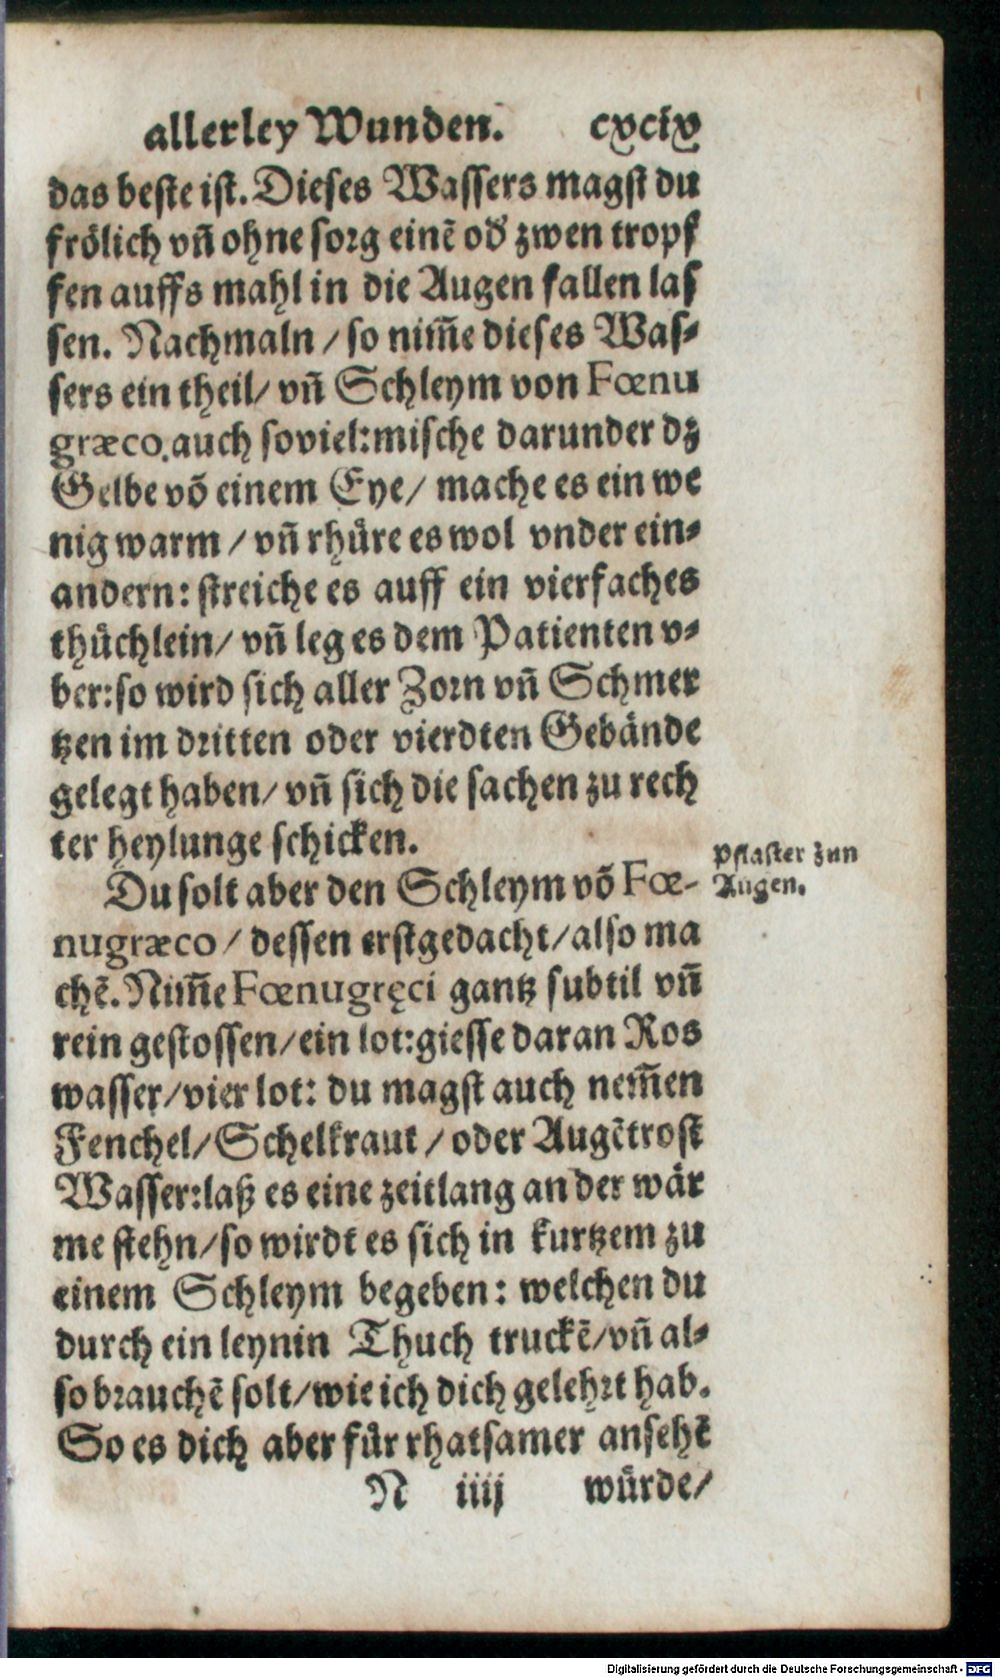 allerley Wunden. cxcix
das beste ist. Dieses Wassers magst du
frölich vñ ohne sorg einẽ od' zwen tropf
fen auffs mahl in die Augen fallen las
sen. Nachmaln / so nim̃e dieses Was-
sers ein theil / vñ Schleym von Fœnu
græco. auch soviel: mische darunder dz
Gelbe võ einem Eye / mache es ein we
nig warm / vñ rhüre es wol vnder ein-
andern: streiche es auff ein vierfaches
thüchlein / vñ leg es dem Patienten v-
ber: so wird sich aller Zorn vñ Schmer
tzen im dritten oder vierdten Gebände
gelegt haben / vñ sich die sachen zu rech
ter heylunge schicken.
Pflaster zun
Augen.
Du solt aber den Schleym võ Fœ-
nugræco / dessen erstgedacht / also ma
chẽ. Nim̃e Fœnugręci gantz subtil vñ
rein gestossen / ein lot: giesse daran Ros
wasser / vier lot: du magst auch nem̃en
Fenchel / Schelkraut / oder Augẽtrost
Wasser: laß es eine zeitlang an der wär
me stehn / so wirdt es sich in kurtzem zu
einem Schleym begeben: welchen du
durch ein leynin Thuch truckẽ / vñ al-
so brauchẽ solt / wie ich dich gelehrt hab.
So es dich aber für rhatsamer ansehẽ
N iiij würde /
Digitalisierung gefördert durch die Deutsche Forschungsgemeinschaft - DFG